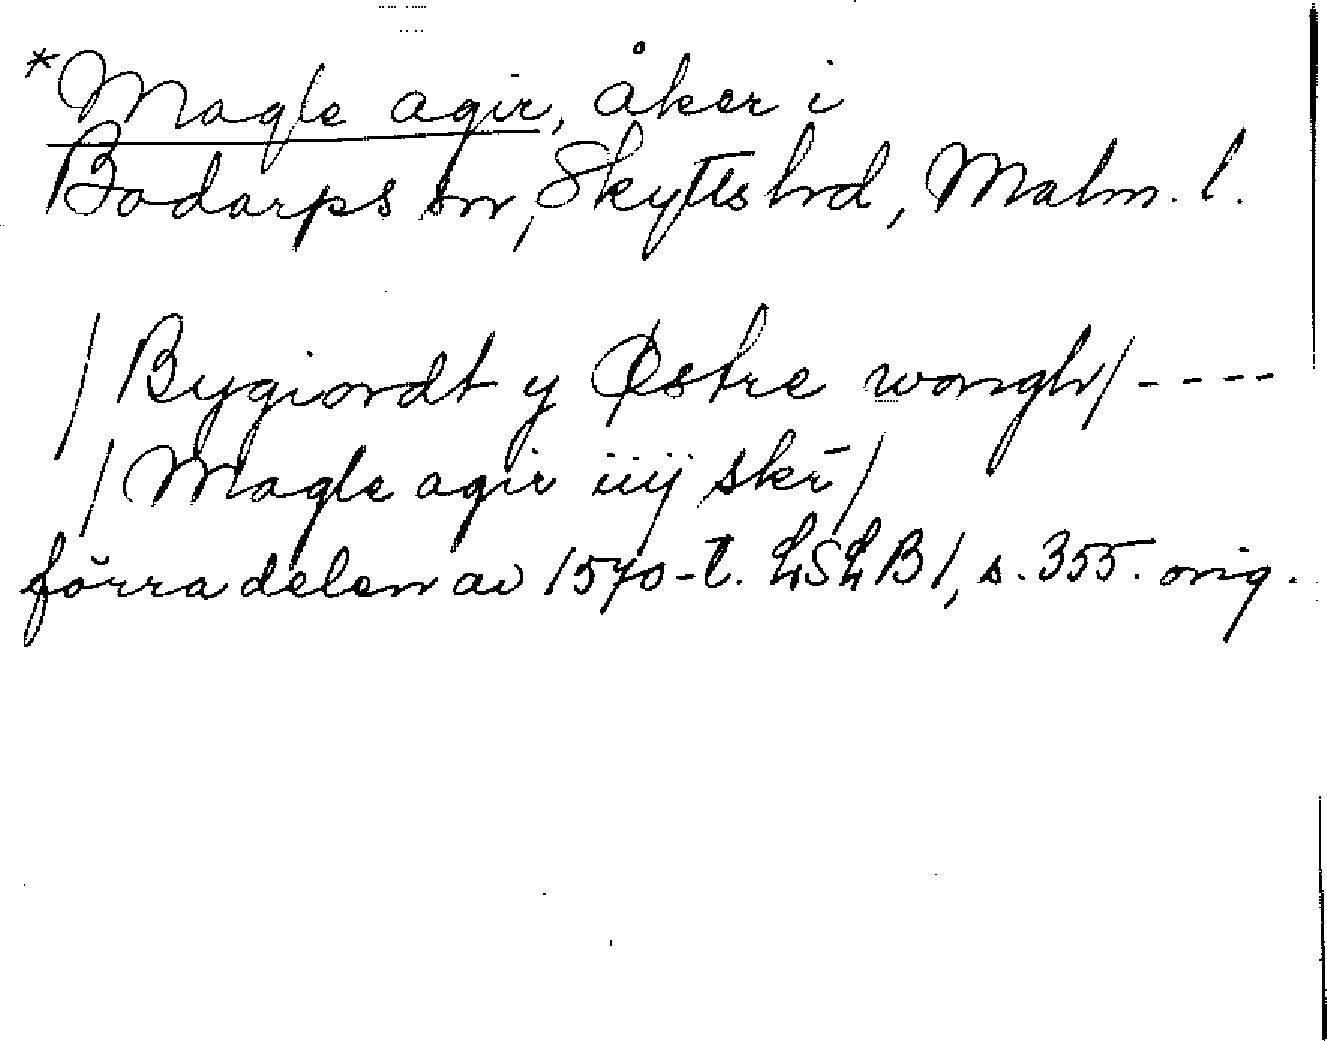 *Magle agir, åker i
Bodarps sn, Skytts hd, Malm. l.
/Bygiordt y Østre wongh/----
/Magle agir iiij skr̄/
förra delen av 1570-t. LSLB1, s. 355. orig.